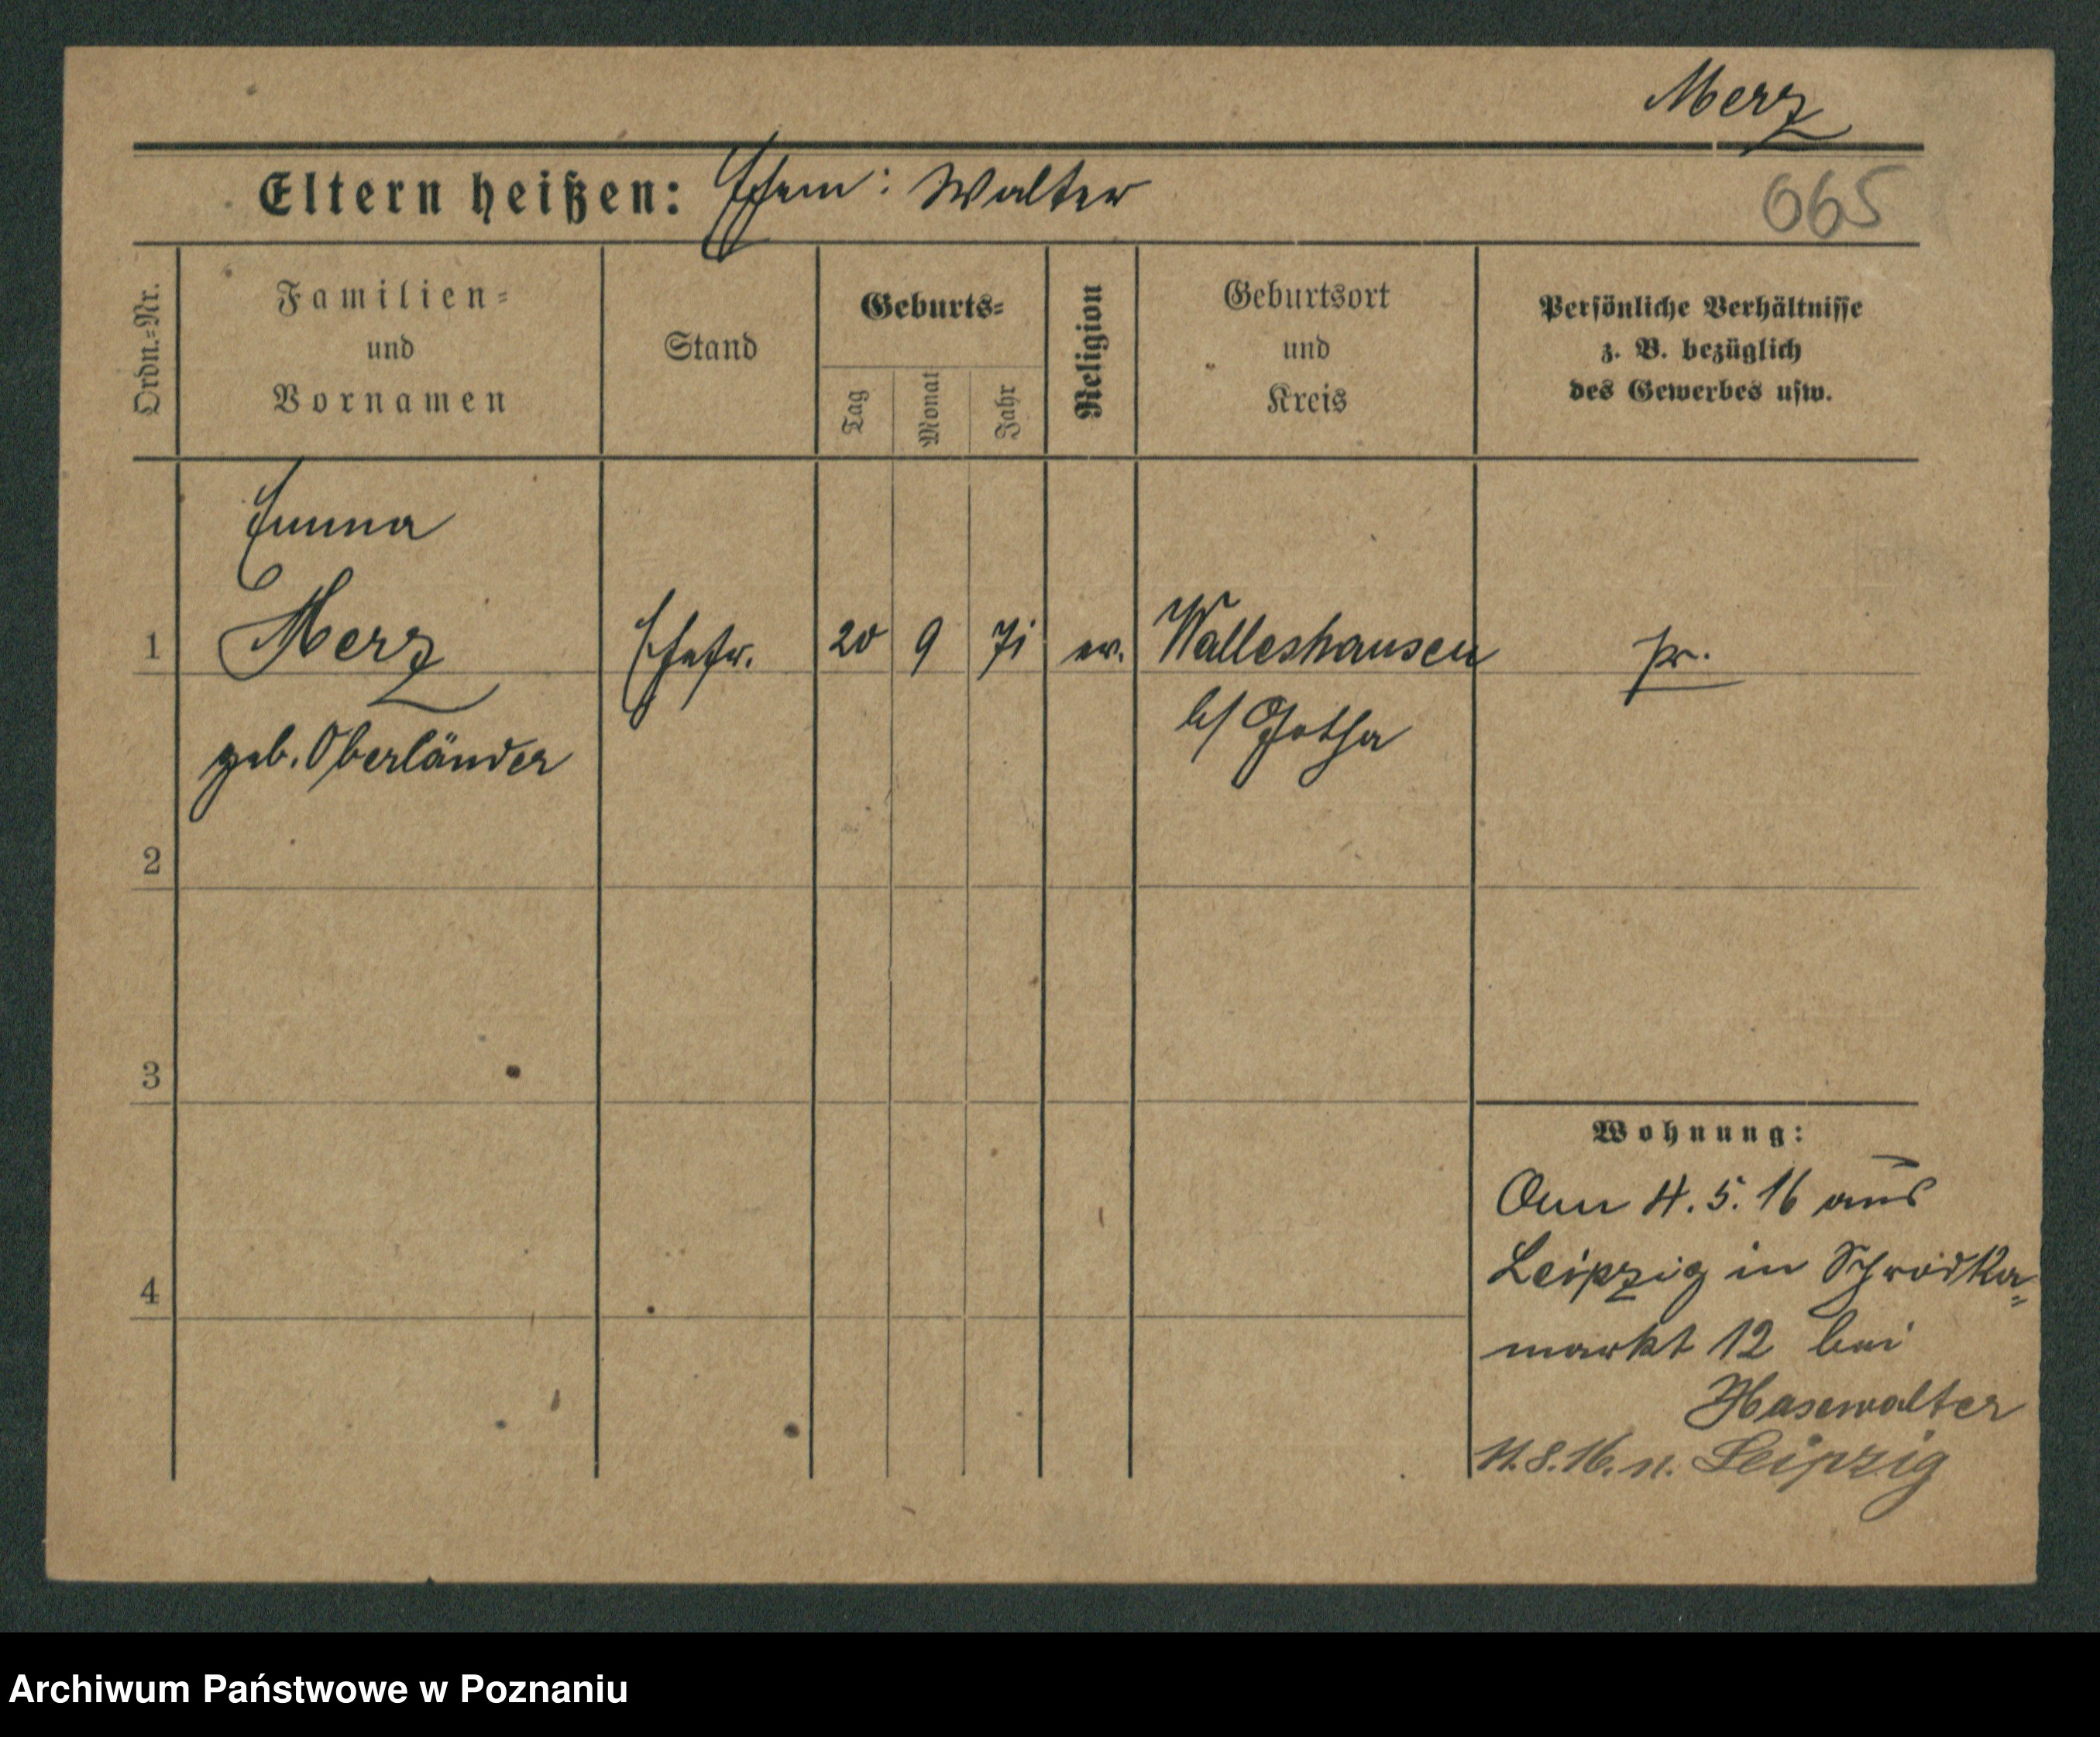 Merz
Eltern heißen: Ehem: Walter
665
Ordn.-Nr.
Familien-
und
Vornamen
Stand
Geburts-
Tag
Monat
Jahr
Religion
Geburtsort
und
Kreis
Persönliche Verhältnisse
z. B. bezüglich
des Gewerbes usw.
Emma
1 Merz Ehefr. 20 9 71 ev. Walleshausen pr.
geb. Oberländer b/ Gotha
2
3
4
Wohnung:
Am 4.5.16 aus
Leipzig in Schrodka-
markt 12 bei
Hasewalter
11.8.16. n. Leipzig
Archiwum Państwowe w Poznaniu